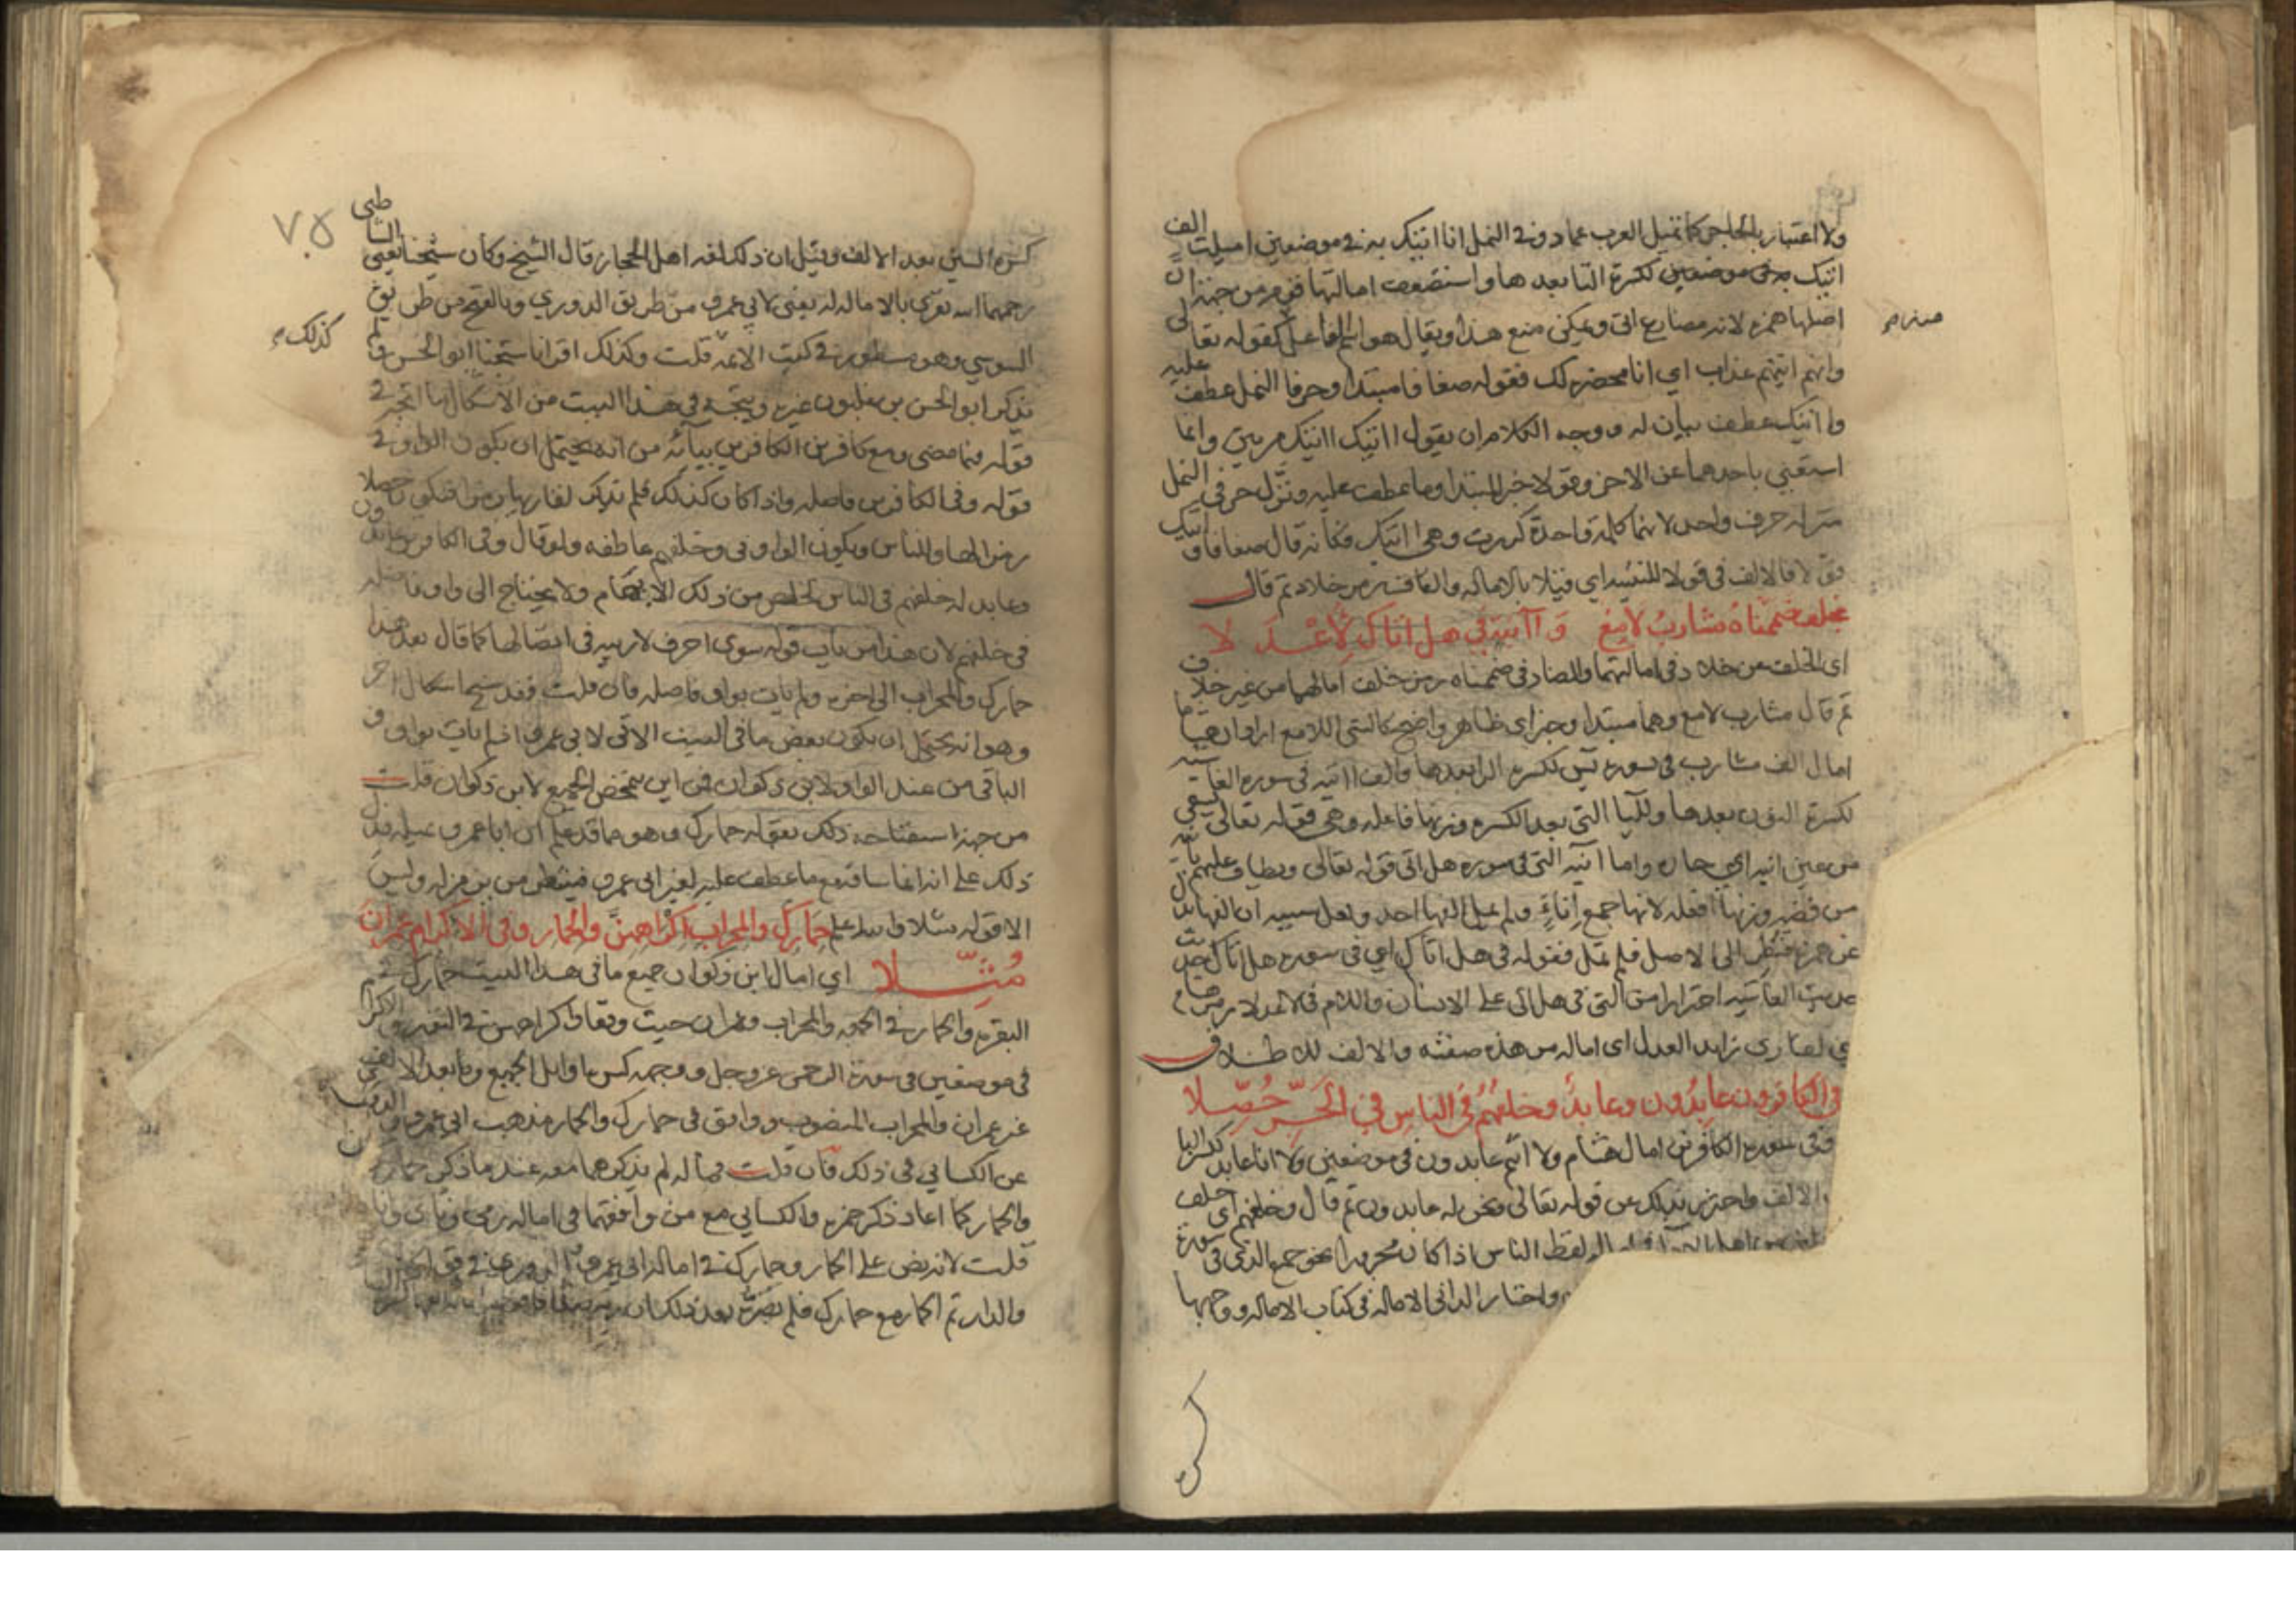 ولا اعتبار بالحاجز كما تميل العرب عمادو في النمل انا اتيك به في موضعين اميلت الف
اتيك به في موضعين لكسرة التا بعدها واستضعف امالتها قوم من جهة ان
اصلها همزه لانه مضارع اتى ويمكن منع هذا ويقال هو اسم فاعل كقوله تعالى
منزم
وانهم اتيهم عذاب اي انا محضره لك فقوله ضعافا مبتدا وحرفا النمل عطف عليه
واتيك عطف بيان له ووجه الكلام ان يقول اتيك اتيك مرتين وانما
استغني باحدهما عن الاخر وقولا خبر المبتدا وما عطف عليه ونزل حرفي النمل
منزله حرف واحد لانهما كلمة واحدة كررت وهي اتيك فكانه قال ضعافا واتيك
قولا فالالف في قولا للتثنيه اي قيلا بالاماله والقاف رمز خلاد ثم قال
بخلف ضممناه مشارب لامع وآنية في هل اتاك لاعدلا
اي الخلف عن خلاد في امالتهما والضاد في ضممناه رمز خلف امالهما من غير خلاف
ثم قال مشارب لامع وهما مبتدا وخبر اي ظاهر واضح كالشي اللامع اراد ان هشاما
امال الف مشارب في سورة يس لكسرة الرا بعدها والف آنية في سورة الغاشية
لكسرة النون بعدها ولليا التي بعد الكسرة وزنها فاعله وهي قوله تعالى تسقى
من عين انيه اي حاره واما آنية التي في سورة هل اتى قوله تعالى ويطاف عليهم بآنية
من فضه وزنها افعله لانها جمع إناءٍ ولم يمل الفها احد ولعل سببه ان الفها بدل
عن همزة فنظر الى الاصل فلم تمل فقوله في هل اتاك اي في سورة هل اتاك حديث
حديث الغاشيه احترازا من التي في هل اتى على الانسان واللام في لاعدلا رمز هشام
اي لقاري زايد العدل اي اماله من هذه صفته والالف للاطلاق
وفي الكافرون عابدون وعابدٌ وخلفهم في الناس في الجرّ حُصّلا
ففي سورة الكافرين امال هشام ولا انتم عابدون في موضعين ولا انا عابد لكسر البا
الالف واحترز بذلك عن قوله تعالى ونحن له عابدون ثم قال وخلفهم اي خلف
لفظ الناس اذا كان مجرورا نحو جميع الذي في سورة
واختار الداني الاماله في كتاب الاماله ووجهها
كسره
٧٥
كسره السين بعد الالف وقيل ان ذلك لغه اهل الحجاز قال الشيخ وكان شيخنا يعني الشاطبي
رحمهما الله يقري بالاماله له يعني لابي عمرو من طريق الدوري وبالفتح من طريق
السوسي وهو مسطور في كتب الائمه قلت وكذلك اقرانا شيخنا ابو الحسن ولم
كذلك
يذكر ابو الحسن بن غلبون غيره ويتجه في هذا البيت من الاشكال ما اتجه في
قوله فيما مضى ومع كافرين الكافرين بيائه من انه يحتمل ان يكون الواو في
قوله وفي الكافرين فاصله واذا كان كذلك فلم يذكر لقاريها رمزا فتكون حصلا
رمزا لها وللناس ويكون الواو في وخلفهم عاطفه ولو قال وفي الكافرون عابدون
وعابد له خلفهم في الناس لخلص من ذلك الابهام ولا يحتاج الى واو فاصله
في خلفهم لان هذا من باب قوله سوى احرف لاريبه في اتصالها كما قال بعد هذا
حمارك والمحراب الى اخره ولم يات بواو فاصله فان قلت فقد سيجا اشكال اخر
وهو انه يحتمل ان يكون بعض ما في البيت الاتي لابي عمرو اذ لم يات بواو و
الباقي من عند الواو لابن ذكوان فمن اين تمخض الجميع لابن ذكوان قلت
من جهة استفتاحه ذلك بقوله حمارك وهو مما قد علم ان ابا عمرو يميله فدل
ذلك على انه انما ساقه مع ما عطف عليه لغير ابي عمرو فينظر من بن مزله وليس
الا قوله مثلا والله اعلم حمارك والمحراب اكراههن والحمار وفي الاكرام عمران
مُثِّلا اي امال ابن ذكوان جميع ما في هذا البيت حمارك في
البقره والحمار في الجمعه والمحراب وعمران حيث وقعا واكراههن في النور والاكرام
في موضعين في سورة الرحمن عز وجل ووجهه كسر ما وايل الجميع وما بعد الالف في
غير عمران والمحراب المنصوب ووافق في حمارك والحمار مذهب ابي عمرو والدوري
عن الكسائي في ذلك فان قلت فما له لم يذكرهما معه عند ما ذكر حمارك
والحمار كما اعاد ذكر حمزه والكسائي مع من وافقهما في اماله رمى وناى وانا
قلت لانه نص على الحمار وحمارك في اماله ابي عمرو والدوري في
والدار ثم الحمار مع حمارك فلم يضره بعد ذلك ان